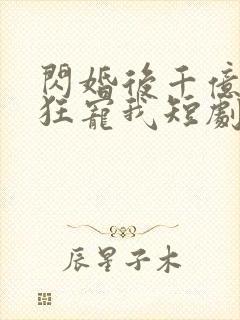 閃婚後千億
狂寵我短劇
辰星子木